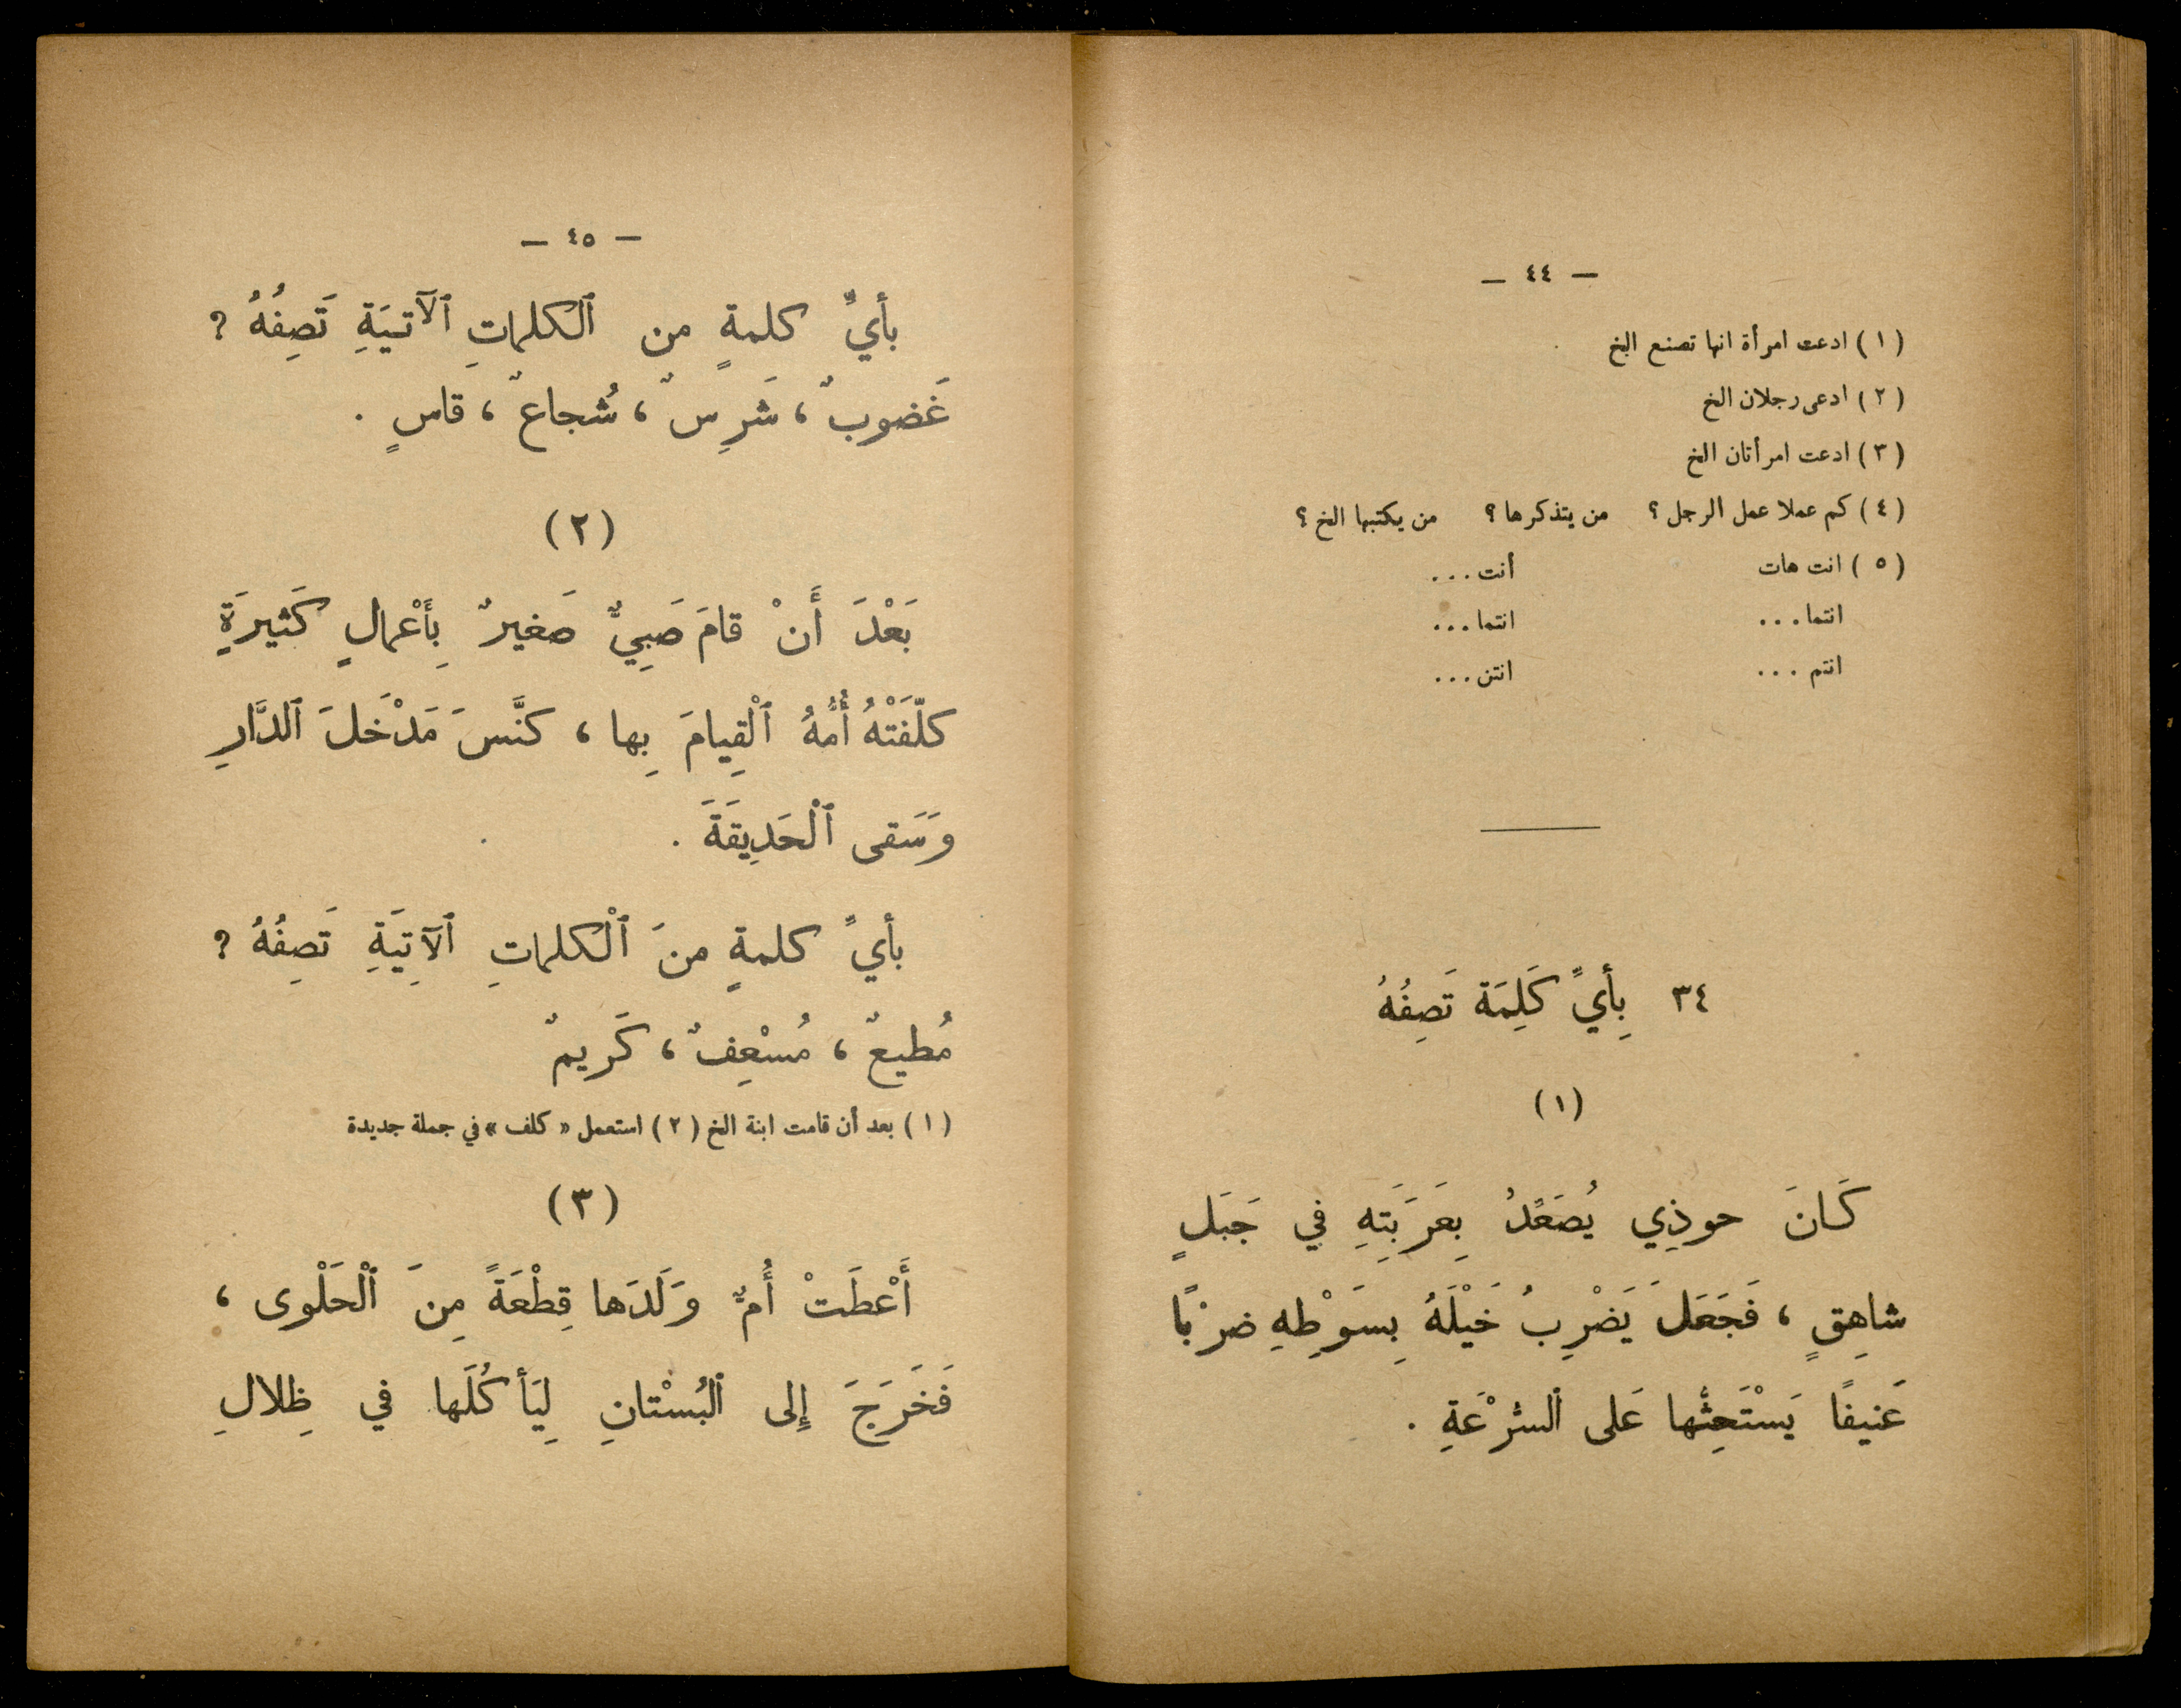 — ٤٤ —
(١) ادعت امرأة انها تصنع الخ
(٢) ادعى رجلان الخ
(٣) ادعت امرأتان الخ
(٤) كم عملا عمل الرجل؟ من يتذكرها؟ من يكتبها الخ؟
(٥) انت هات أنت...
انتما... انتما...
انتم... انتن...
٣٤ بِأَيِّ كَلِمَة تَصِفُهُ
(١)
كَانَ حوذِي يُصَعِّدُ بِعَرَبَتِهِ في جَبَلٍ
شاهِقٍ، فَجَعَلَ يَضْرِبُ خَيْلَهُ بِسَوْطِهِ ضربًا
عَنيفًا يَسْتَحِثُّها عَلى ٱلسُّرْعَةِ.
— ٤٥ —
بأيِّ كلمةٍ من ٱلكلماتِ ٱلآتـيَةِ تَصِفُهُ؟
غَضوبٌ، شَرِسٌ، شُجاعٌ، قاسٍ.
(٢)
بَعْدَ أَنْ قامَ صَبِيٌّ صَغيرٌ بِأَعْمالٍ كَثيرَةٍ
كلّفَتْهُ أُمُّهُ ٱلْقِيامَ بِها، كنَّسَ مَدْخَلَ ٱلدَّارِ
وَسَقى ٱلْحَدِيقَةَ.
بأيِّ كلمةٍ منَ ٱلْكلماتِ ٱلآتِيَةِ تَصِفُهُ؟
مُطيعٌ، مُسْعِفٌ، كَريمٌ
(١) بعد أن قامت ابنة الخ (٢) استعمل «كلف» في جملة جديدة
(٣)
أَعْطَتْ أُمٌّ وَلَدَها قِطْعَةً مِنَ ٱلْحَلْوى،
فَخَرَجَ إِلى ٱلبُسْتانِ لِيَأكُلَها في ظِلالِ